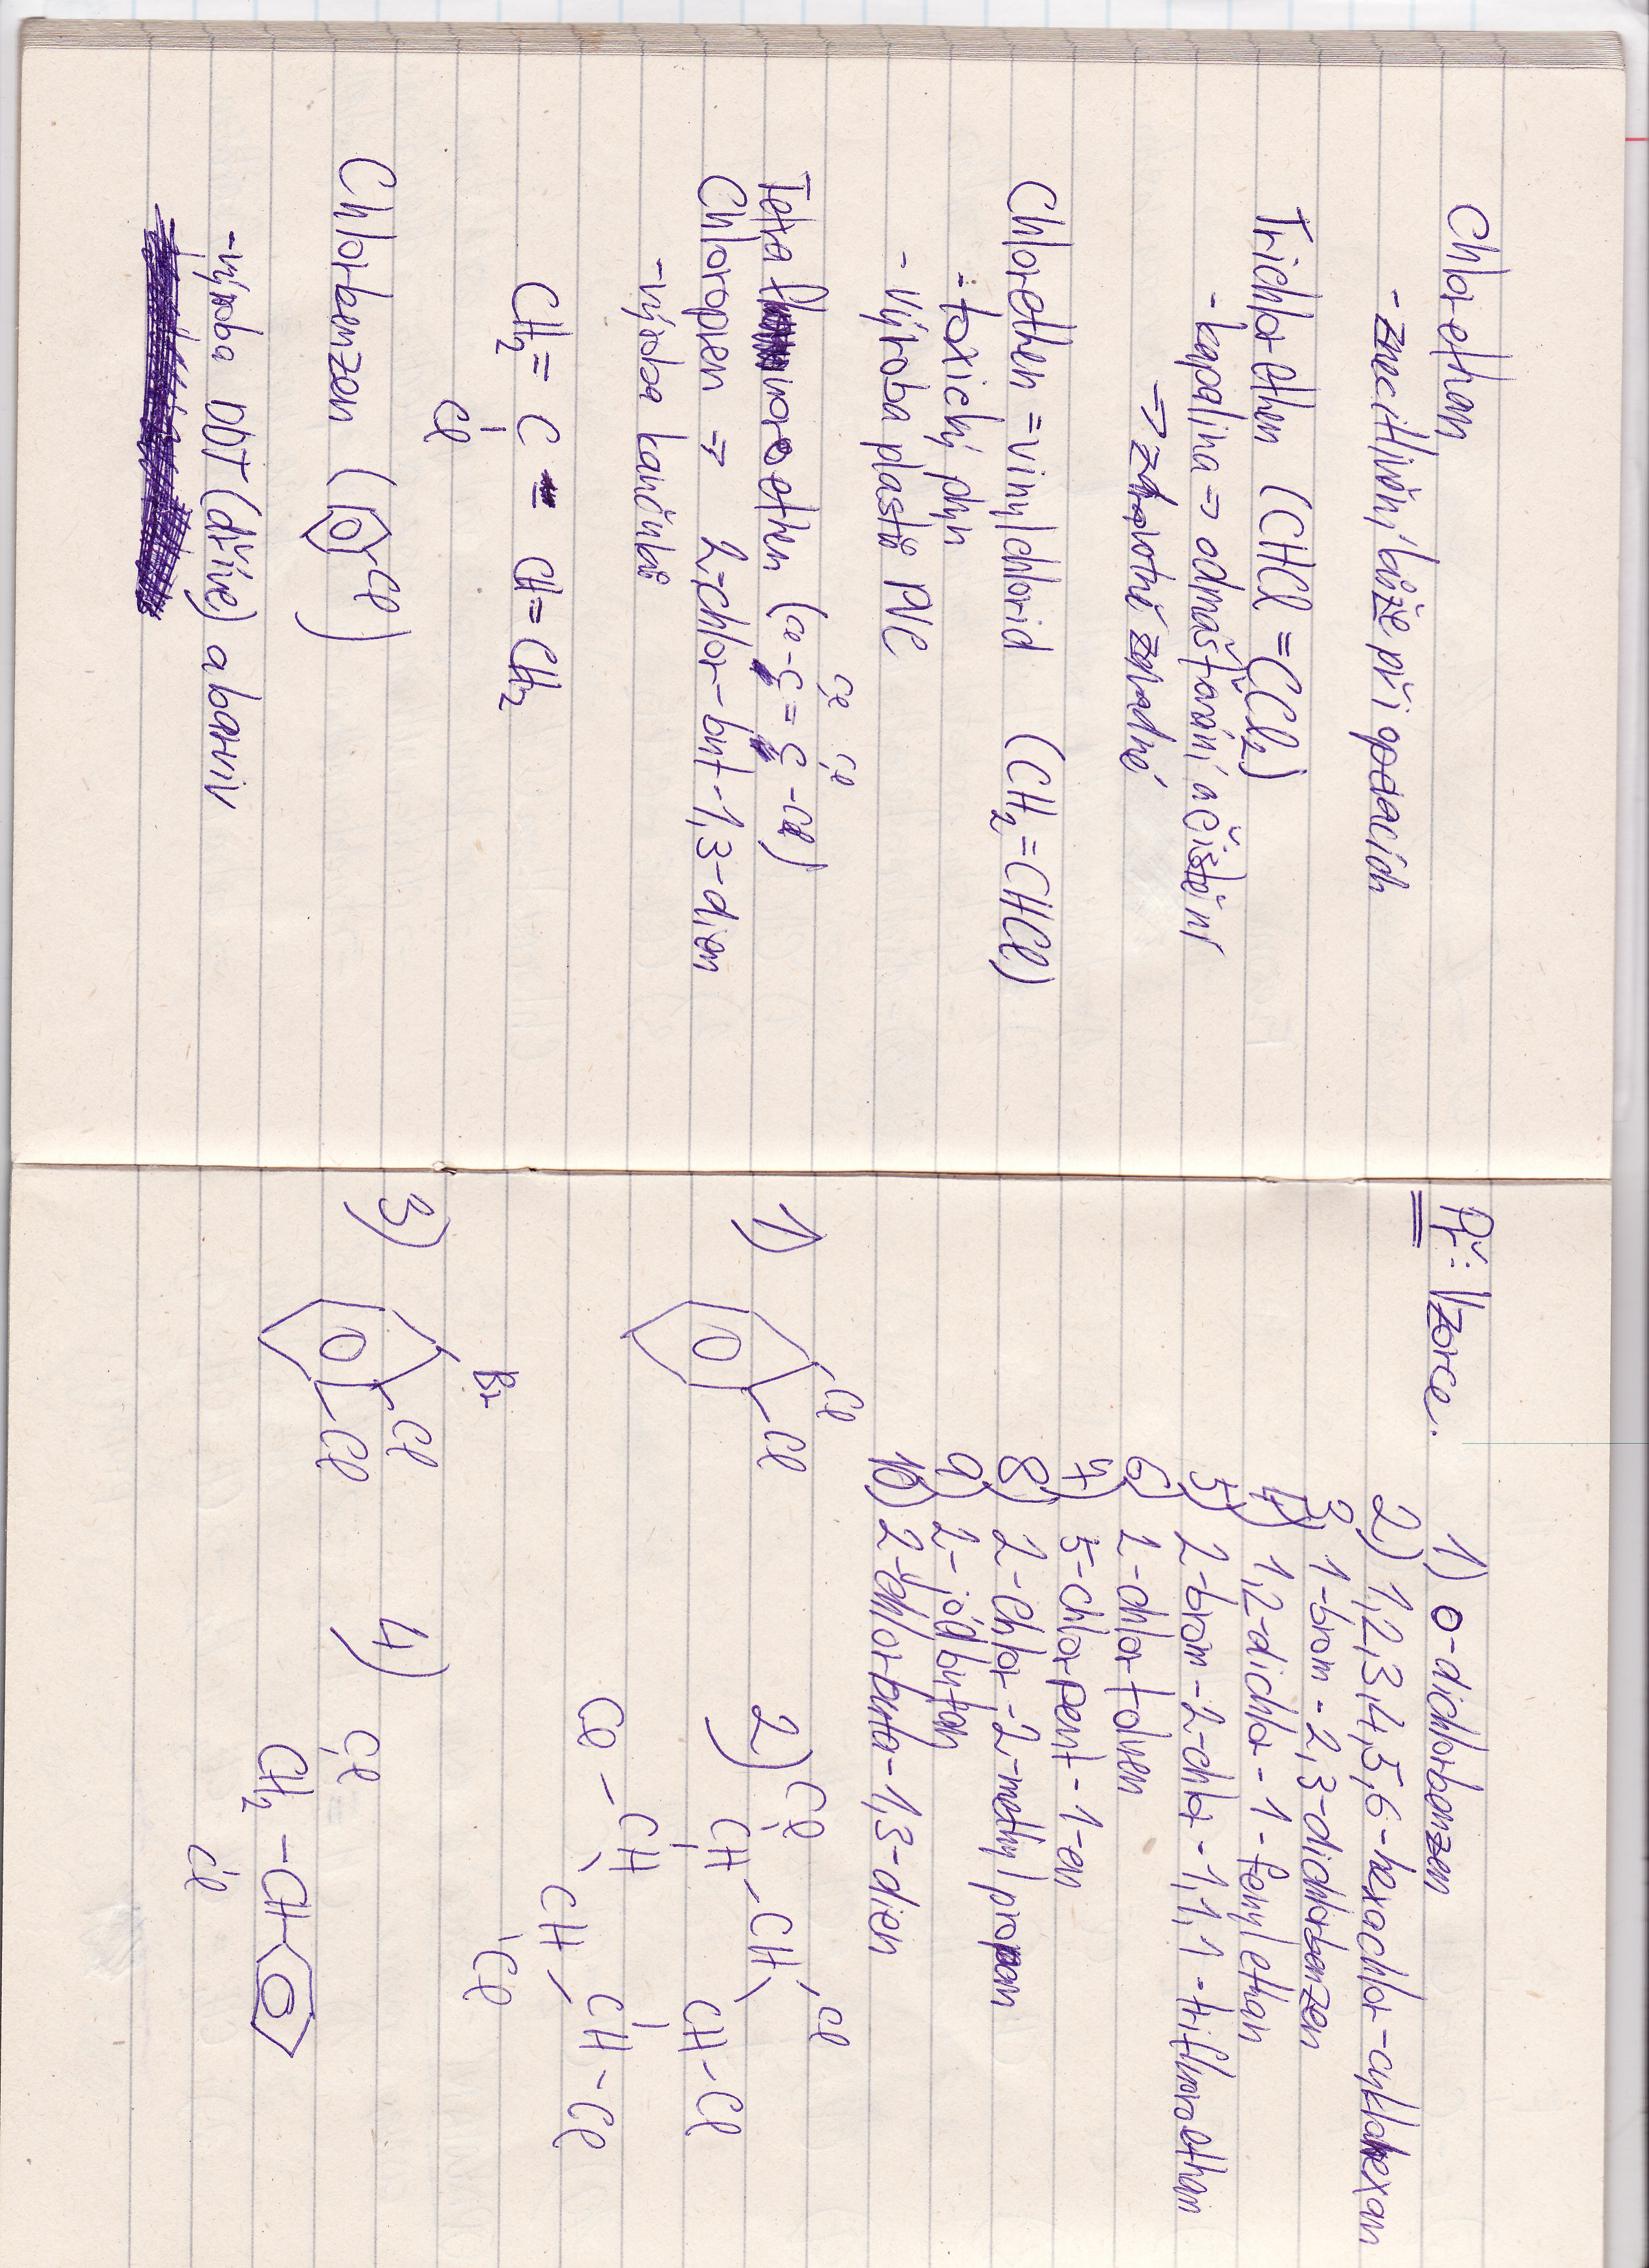 Chlorethan
- znecitlivění kůže při operacích
Trichlorethen (CHCl = CCl2)
- kapalina => odmašťování a čištění
=> zdravotně závadné
Chlorethen = vinylchlorid (CH2 = CHCl)
- toxický plyn
- Výroba plastů PVC
Cl Cl
Tetrafluorethen (Cl - C = C - Cl)
Chloropren => 2-chlor-but-1,3-dien
- výroba kaučuků
CH2 = C - CH = CH2
Cl
Chlorbenzen ( Cl)
- výroba DDT (dříve) a barviv
Př: Vzorce. 1) o-dichlorbenzen
2) 1,2,3,4,5,6-hexachlor-cyklohexan
3 1-brom-2,3-dichlorbenzen
4) 1,2-dichlor-1-fenylethan
5) 2-brom-2-chlor-1,1,1-trifluorethan
6) 2-chlortoluen
7) 5-chlorpent-1-en
8) 2-chlor-2-methylpropan
9) 2-jódbutan
10) 2-chlorbuta-1,3-dien
1) Cl Cl
2) Cl Cl
CH - CH
CH - Cl
Cl - CH
CH - Cl
CH
Cl
3) Br
Cl
Cl
4) Cl
CH2 - CH
Cl